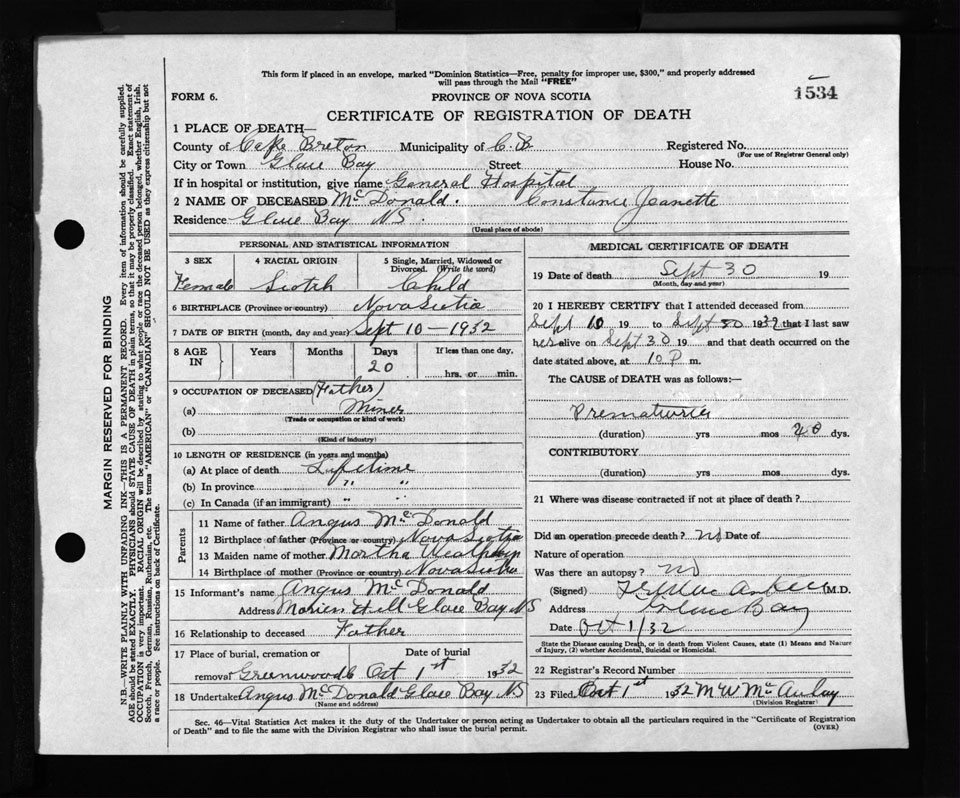 This form if placed in an envelope, marked "Dominion Statistics—Free, penalty for improper use, $300," and properly addressed
will pass through the Mail "FREE"
FORM 6.
PROVINCE OF NOVA SCOTIA
1534
CERTIFICATE OF REGISTRATION OF DEATH
1 PLACE OF DEATH—
County of Cape Breton Municipality of C.B. Registered No.
(For use of Registrar General only)
City or Town Glace Bay Street House No.
If in hospital or institution, give name General Hospital
2 NAME OF DECEASED McDonald. Constance Jeanette
Residence Glace Bay NS.
(Usual place of abode)
PERSONAL AND STATISTICAL INFORMATION
3 SEX 4 RACIAL ORIGIN 5 Single, Married, Widowed or
Divorced. (Write the word)
Female Scotch Child
6 BIRTHPLACE (Province or country) Nova Scotia
7 DATE OF BIRTH (month, day and year) Sept 10 - 1932
8 AGE IN Years Months Days If less than one day,
20 hrs. or min.
9 OCCUPATION OF DECEASED (Father)
(a) Miner
(Trade or occupation or kind of work)
(b)
(Kind of industry)
10 LENGTH OF RESIDENCE (in years and months)
(a) At place of death Lifetime
(b) In province " "
(c) In Canada (if an immigrant) " "
Parents
11 Name of father Angus McDonald
12 Birthplace of father (Province or country) Nova Scotia
13 Maiden name of mother Martha
14 Birthplace of mother (Province or country) Nova Scotia
15 Informant's name Angus McDonald
Address Hill Glace Bay NS
16 Relationship to deceased Father
17 Place of burial, cremation or Date of burial
removal Greenwood Oct 1st 1932
18 Undertaker Angus McDonald Glace Bay NS
(Name and address)
MEDICAL CERTIFICATE OF DEATH
19 Date of death Sept 30 19
(Month, day and year)
20 I HEREBY CERTIFY that I attended deceased from
Sept 10 19 to Sept 30 1932 that I last saw
her alive on Sept 30 19 and that death occurred on the
date stated above, at 10 P m.
The CAUSE of DEATH was as follows:—
(duration) yrs mos 20 dys.
CONTRIBUTORY
(duration) yrs. mos. dys.
21 Where was disease contracted if not at place of death?
Did an operation precede death? no Date of
Nature of operation
Was there an autopsy? no
(Signed) M.D.
Address Glace Bay
Date Oct 1/32
State the Disease causing Death, or in death from Violent Causes, state (1) Means and Nature
of Injury, (2) whether Accidental, Suicidal or Homicidal.
22 Registrar's Record Number
23 Filed Oct 1st 1932 M W McAulay
(Division Registrar)
Sec. 46—Vital Statistics Act makes it the duty of the Undertaker or person acting as Undertaker to obtain all the particulars required in the "Certificate of Registration
of Death" and to file the same with the Division Registrar who shall issue the burial permit.
(OVER)
MARGIN RESERVED FOR BINDING
N.B.—WRITE PLAINLY WITH UNFADING INK—THIS IS A PERMANENT RECORD. Every item of information should be carefully supplied.
AGE should be stated EXACTLY. PHYSICIANS should STATE CAUSE OF DEATH in plain terms, so that it may be properly classified. Exact statement of
OCCUPATION is very important. RACIAL ORIGIN will be described by stating to what people or race the deceased person belonged, whether English, Irish,
Scotch, French, German, Russian, Ruthenian, etc. The terms "AMERICAN" or "CANADIAN" SHOULD NOT BE USED as they express citizenship but not
a race or people. See instructions on back of Certificate.